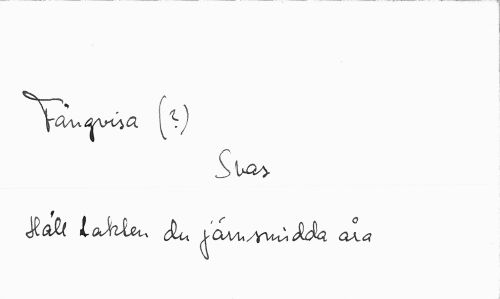 Fångvisa (?)
Svas
Håll takten du järnsmidda åra